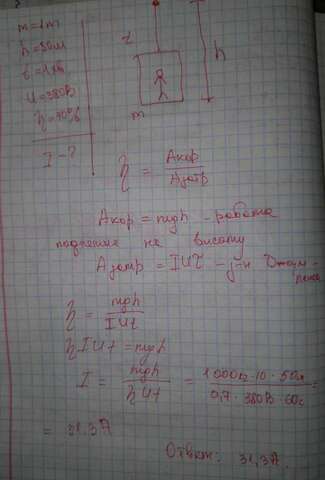 m = 1т
h = 50м
t = 1хв
U = 380В
η = 70%
I - ?
t
h
m
η = Aкор / Aзатр
Акор = mgh - робота
на висоту
Aзатр = IUt -
η = mgh / IUt
ηIUt = mgh
I = mgh / ηUt = 1000кг·10·50м / 0,7·380В·60с =
= 31,3A
Ответ: 31,3A.